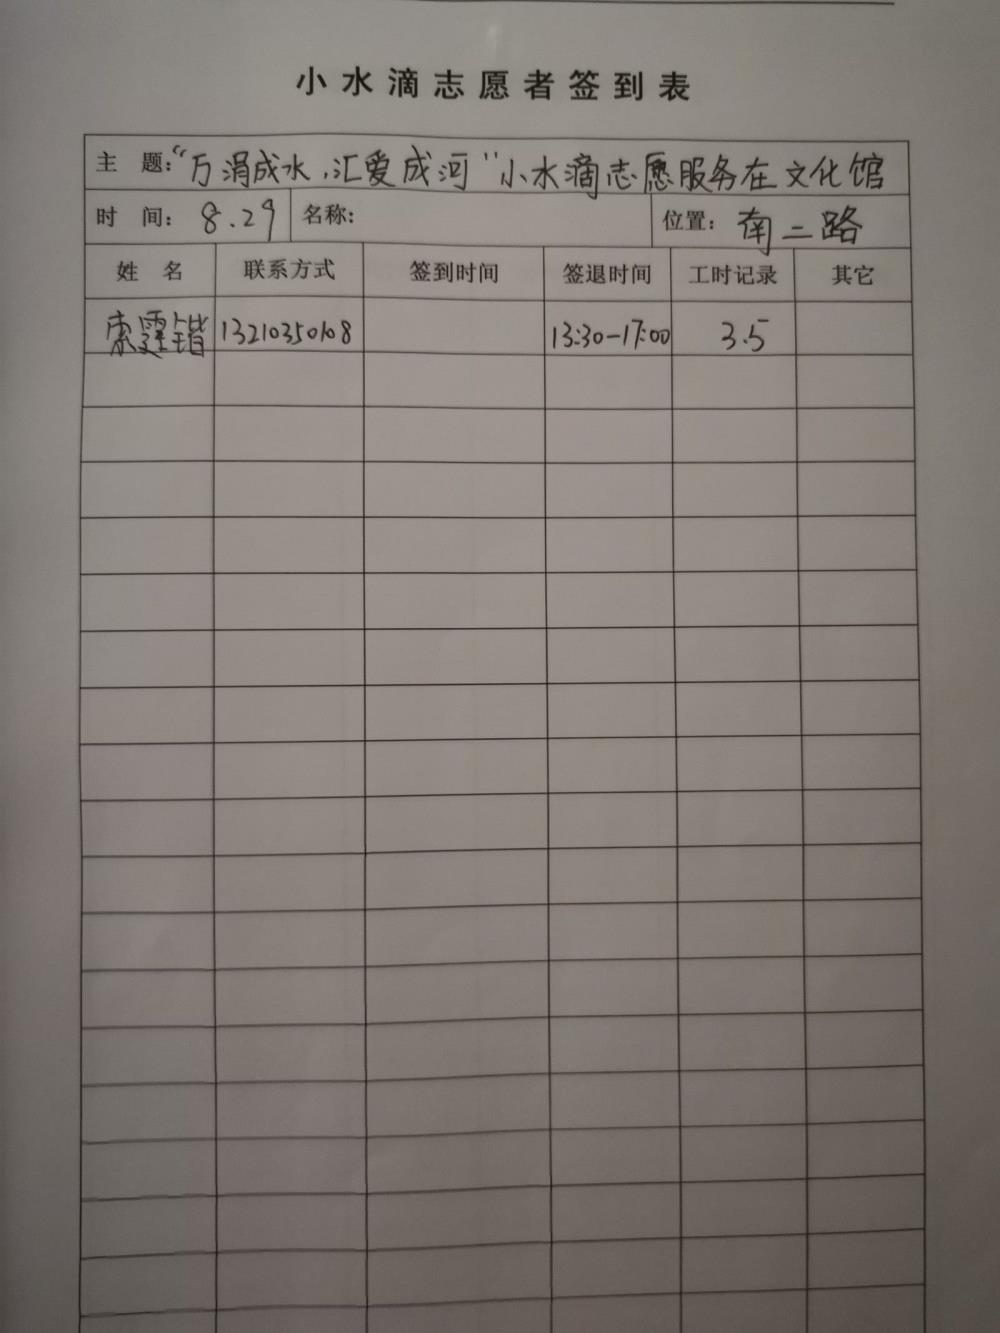 小水滴志愿者签到表
主 题：“万涓成水，汇爱成河”小水滴志愿服务在文化馆
时 间：8.29 名称： 位置：南二路
姓 名 联系方式 签到时间 签退时间 工时记录 其它
索霆锴 13210350108 13:30-17:00 3.5